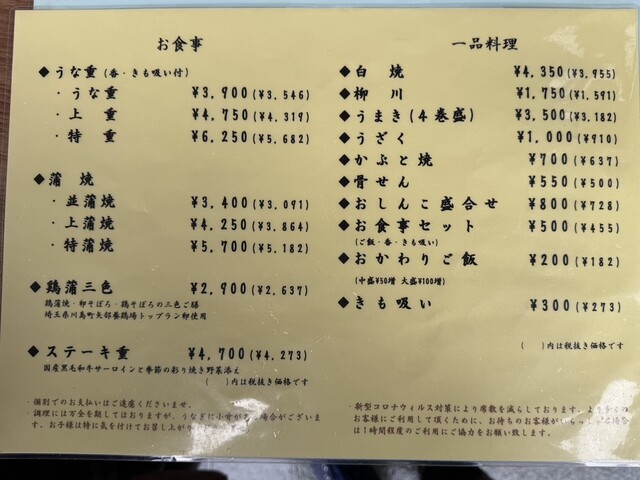 お食事
◆うな重(香・きも吸い付)
・うな重 ¥3,900(¥3,546)
・上重 ¥4,750(¥4,319)
・特重 ¥6,250(¥5,682)
◆蒲焼
・並蒲焼 ¥3,400(¥3,091)
・上蒲焼 ¥4,250(¥3,864)
・特蒲焼 ¥5,700(¥5,182)
◆鶏蒲三色 ¥2,900(¥2,637)
鶏蒲焼・卵そぼろ・鶏そぼろの三色ご膳
埼玉県川島町矢部養鶏場トップラン卵使用
◆ステーキ重 ¥4,700(¥4,273)
国産黒毛和牛サーロインと季節の彩り焼き野菜添え
( )内は税抜き価格です
・個別でのお支払いはご遠慮くださいませ。
・調理には万全を期しておりますが、うなぎに小骨がある場合がございま
す。お子様は特に気を付けてお召し上がり
一品料理
◆白焼 ¥4,350(¥3,955)
◆柳川 ¥1,750(¥1,591)
◆うまき(4巻盛) ¥3,500(¥3,182)
◆うざく ¥1,000(¥910)
◆かぶと焼 ¥700(¥637)
◆骨せん ¥550(¥500)
◆おしんこ盛合せ ¥800(¥728)
◆お食事セット ¥500(¥455)
(ご飯・香・きも吸い)
◆おかわりご飯 ¥200(¥182)
(中盛¥50増 大盛¥100増)
◆きも吸い ¥300(¥273)
( )内は税抜き価格です
・新型コロナウィルス対策により席数を減らしております。より多くの
お客様にご利用して頂くために、お待ちのお客様がいらっしゃる場合
は1時間程度のご利用にご協力をお願い致します。